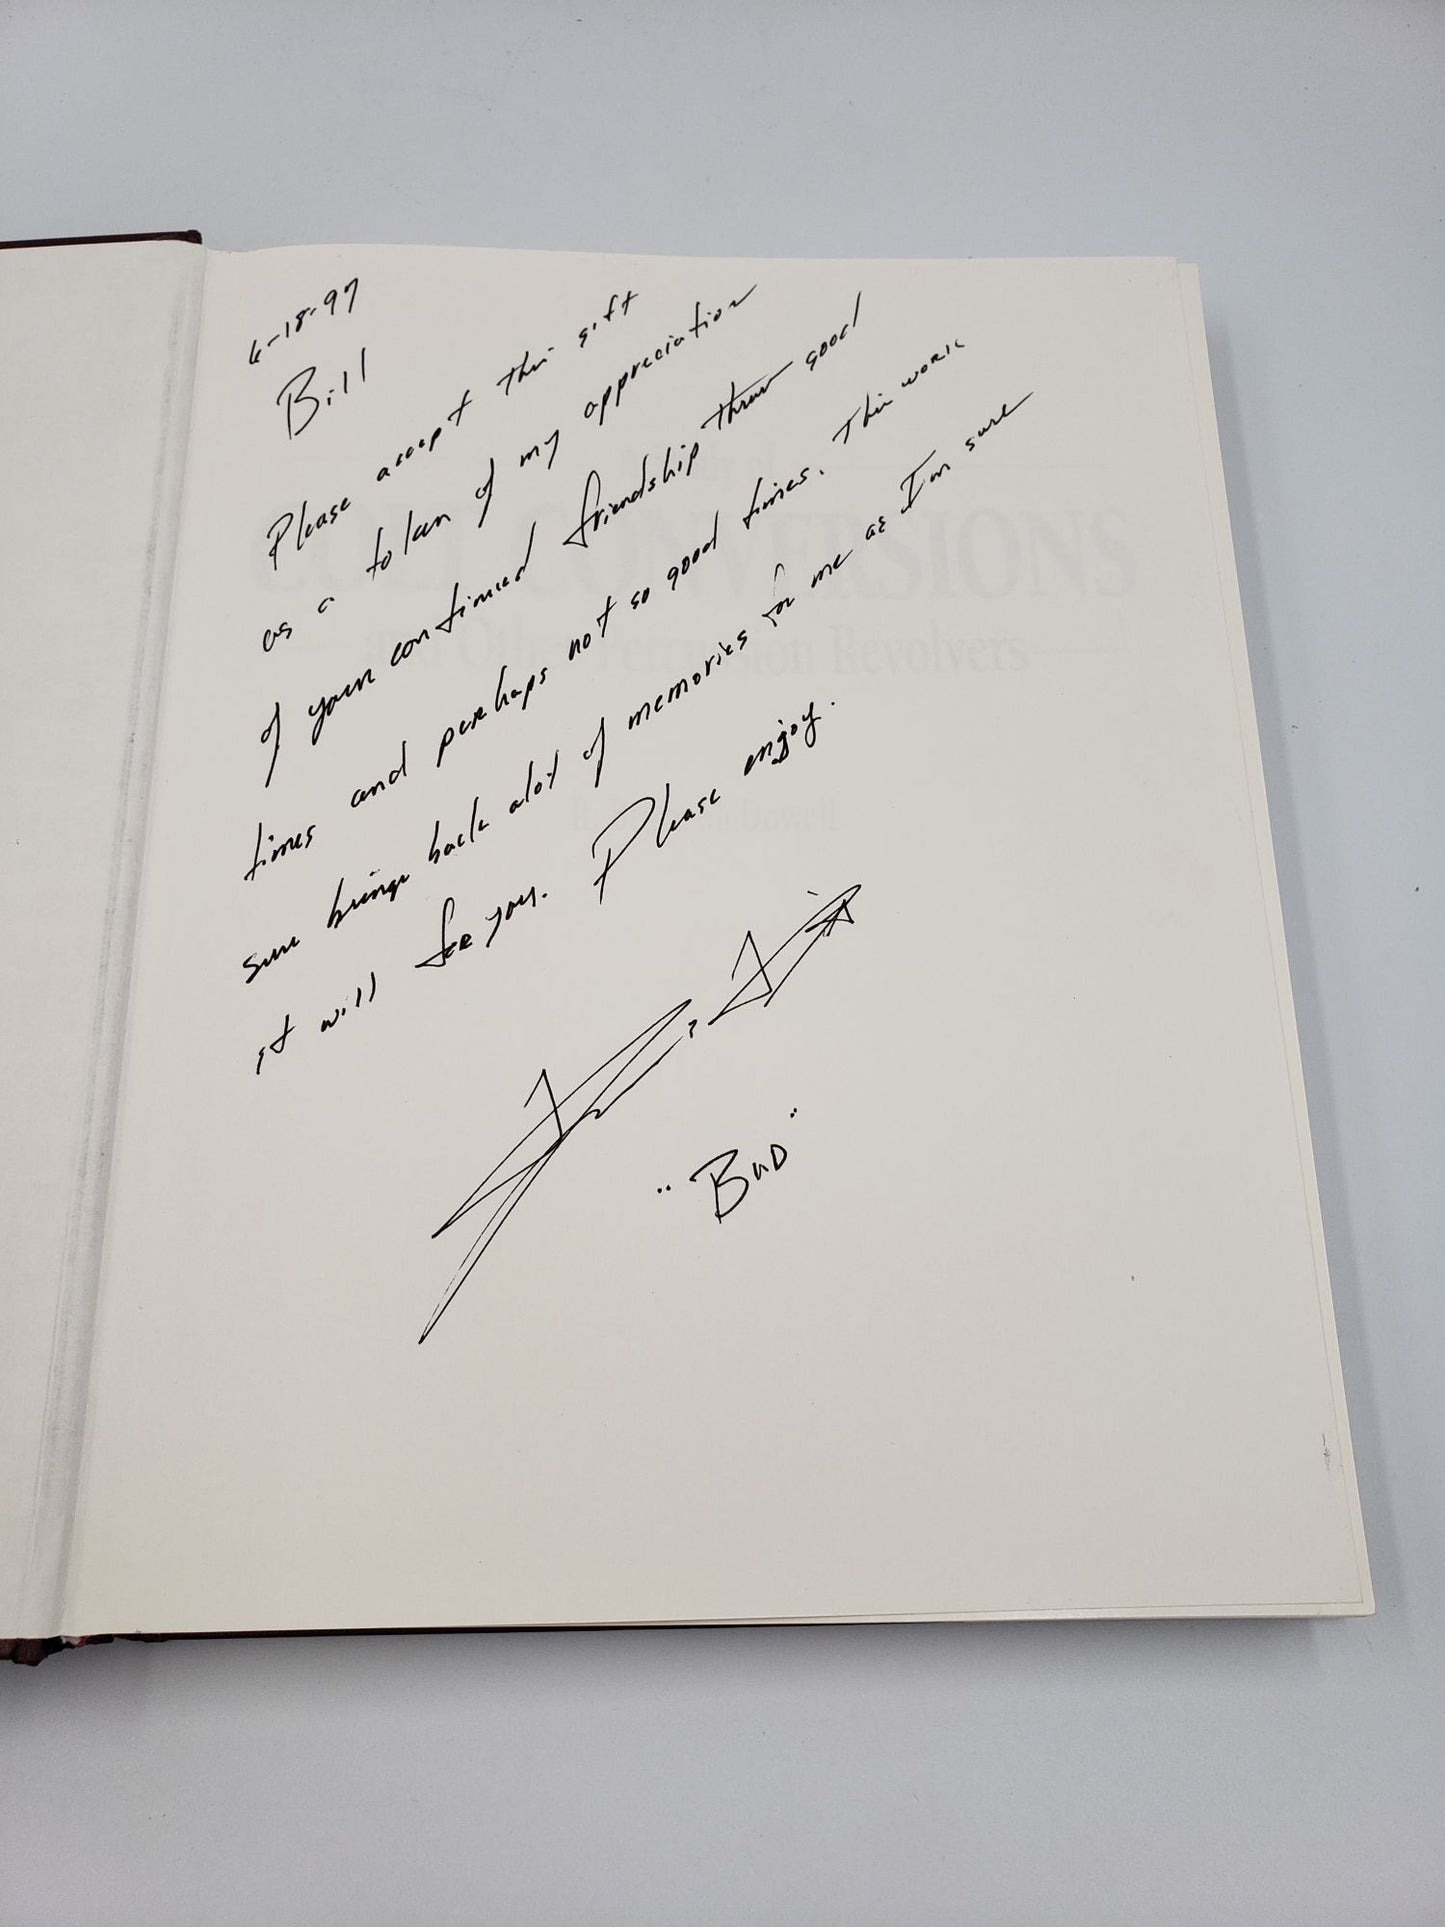 6-18-97
Bill
Please accept this gift
as a token of my appreciation
of your continued friendship threw good
times and perhaps not so good times. This work
sure brings back alot of memories for me as I'm sure
it will for you. Please enjoy.
"BUD"
A Study of
COLT CONVERSIONS
and Other Percussion Revolvers
McDowell